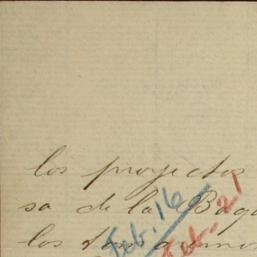 los proyectos
sa de la Baga
los
Feb. 16
Feb. 21